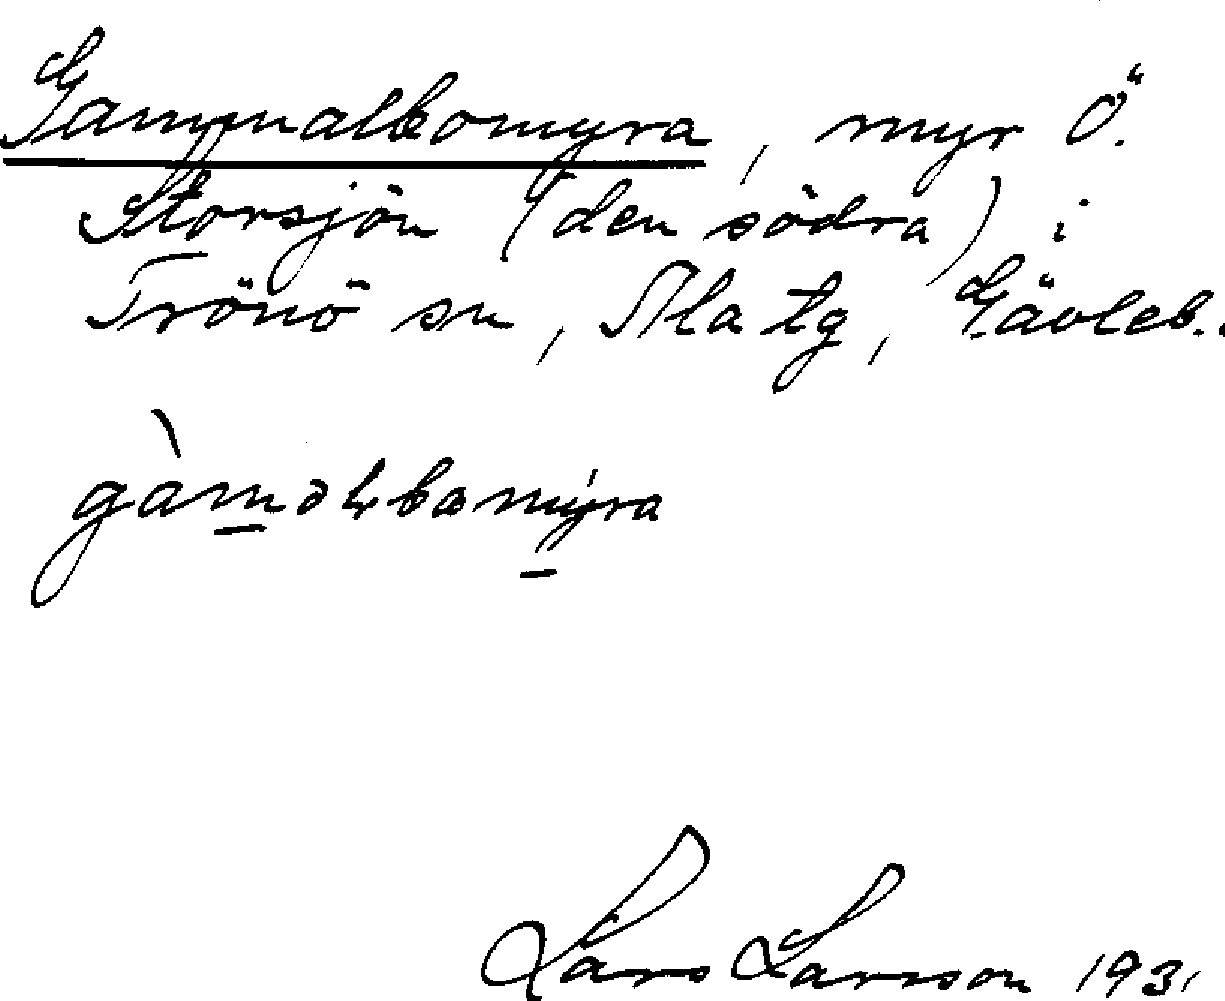 Gammalbomyra, myr Ö.
Storsjön (den södra) i
Trönö sn, Ala tg, Gävleb..
Lars Larsson 1931